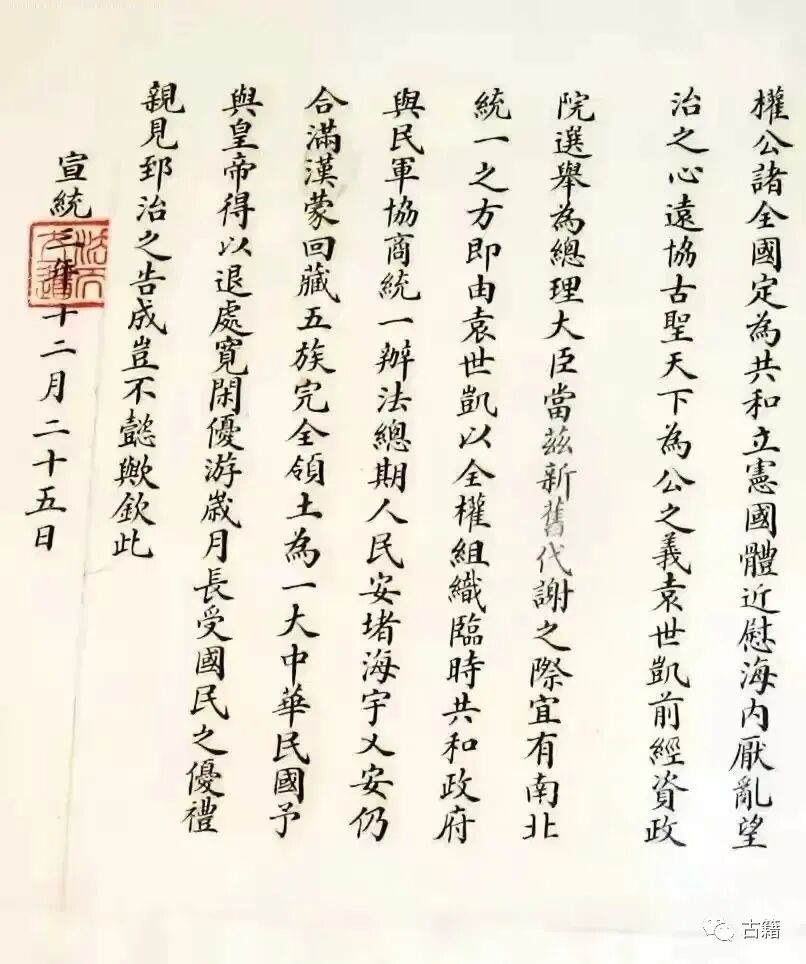 權公諸全國定為共和立憲國體近慰海內厭亂望
治之心遠協古聖天下為公之義袁世凱前經資政
院選舉為總理大臣當茲新舊代謝之際宜有南北
統一之方即由袁世凱以全權組織臨時共和政府
與民軍協商統一辦法總期人民安堵海宇乂安仍
合滿漢蒙回藏五族完全領土為一大中華民國予
與皇帝得以退處寬閑優游歲月長受國民之優禮
親見郅治之告成豈不懿歟欽此
宣統三年十二月二十五日
法天立道
古籍